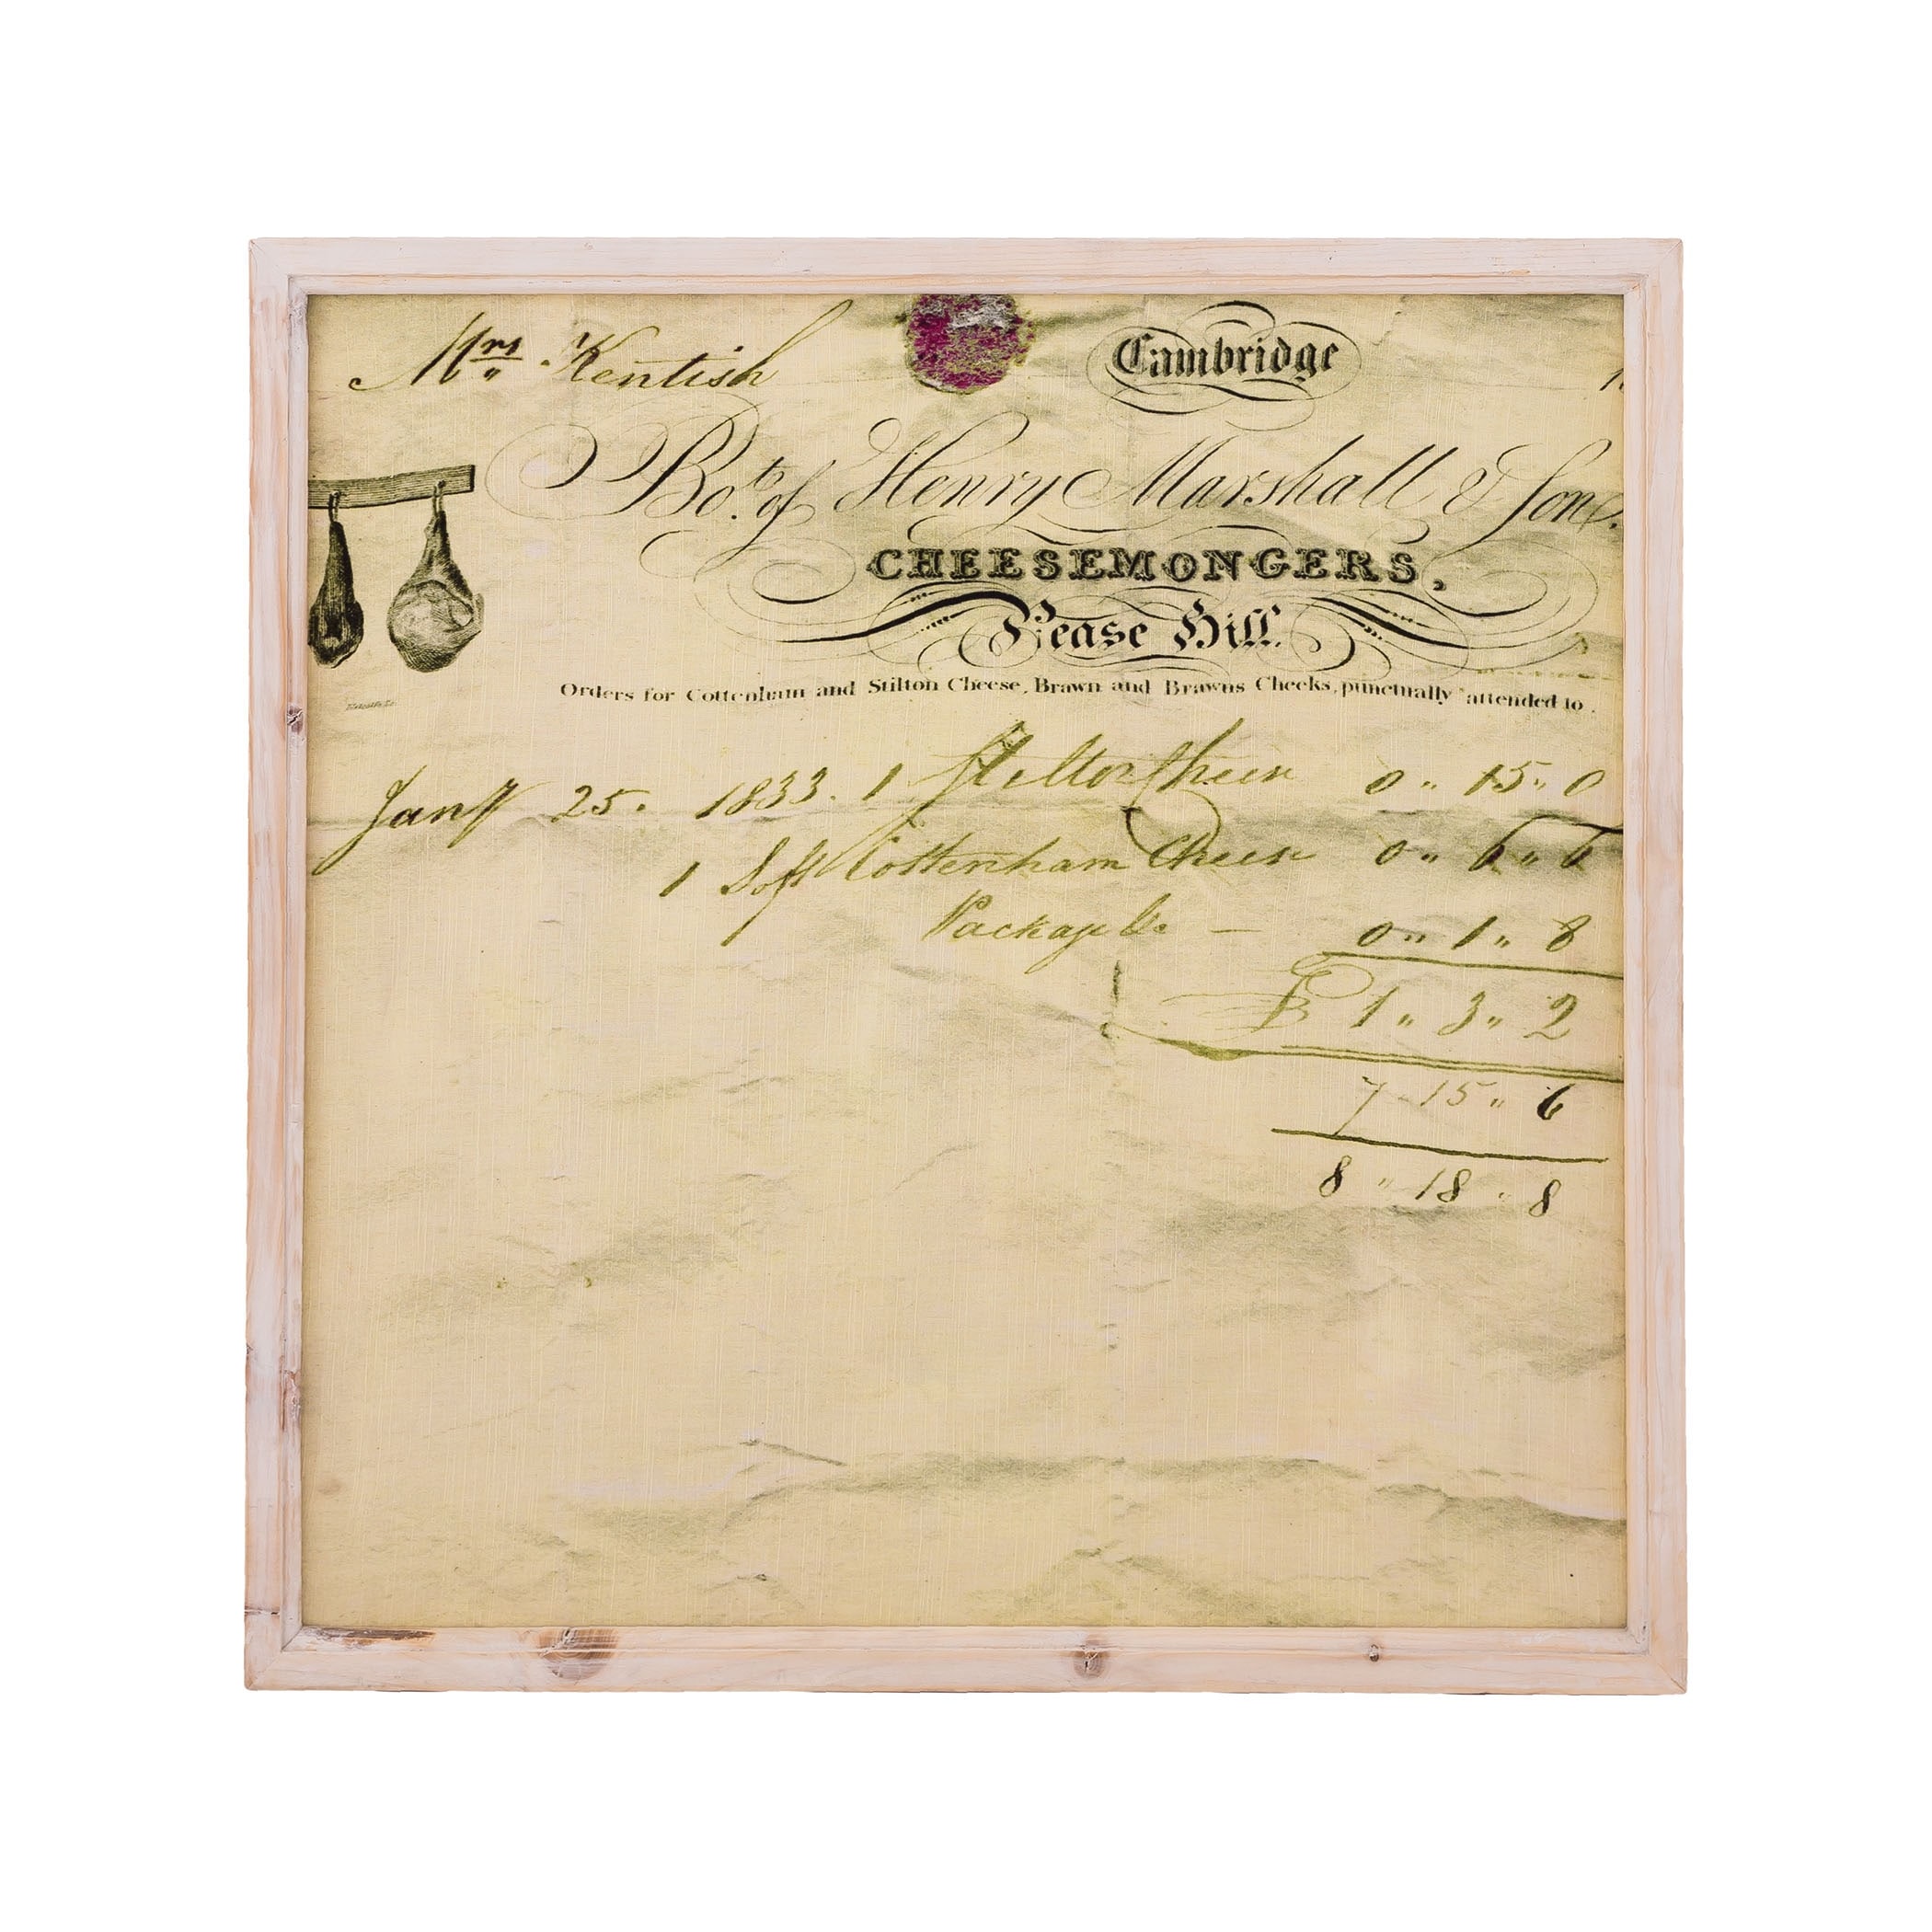 Mrs Kentish
Cambridge
Bo.t of Henry Marshall & Son.
CHEESEMONGERS,
Pease Hill.
Orders for Cottenham and Stilton Cheese, Brawn and Brawns Cheeks, punctually attended to.
Jany 25. 1833. 1 Stilton Cheese 0 " 15 " 0
1 Soft Cottenham Cheese 0 " 6 " 6
Package &c. — 0 " 1 " 8
£ 1 " 3 " 2
7 - 15 " 6
8 " 18 " 8